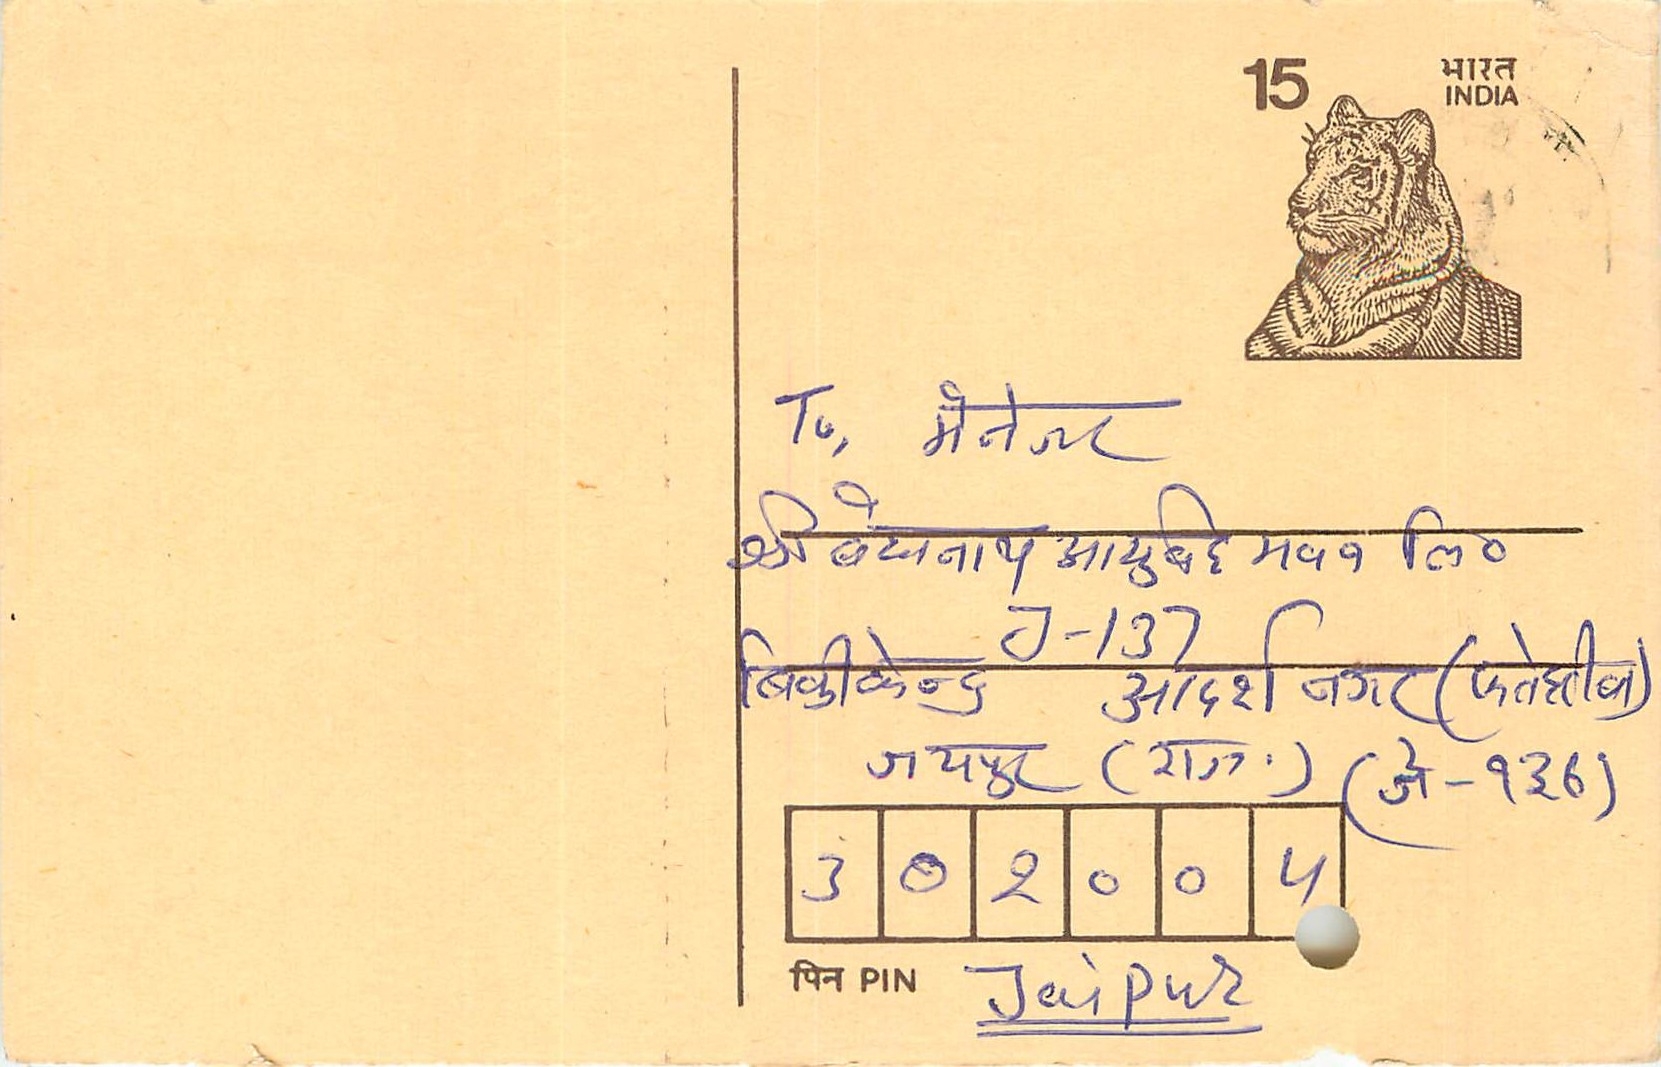 15 भारत
INDIA
To, मैनेजर
श्री बैद्यनाथ आयुर्वेद भवन लि०
J-137
बिक्री केन्द्र आदर्श नगर (फतेहटीबा)
जयपुर (राज.) (जे-१३6)
3 0 2 0 0 4
पिन PIN
Jaipur